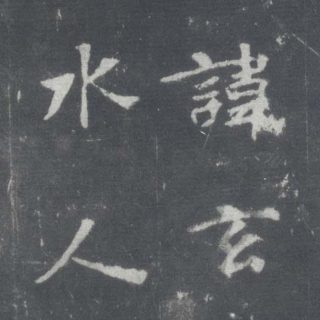 諱玄
水人